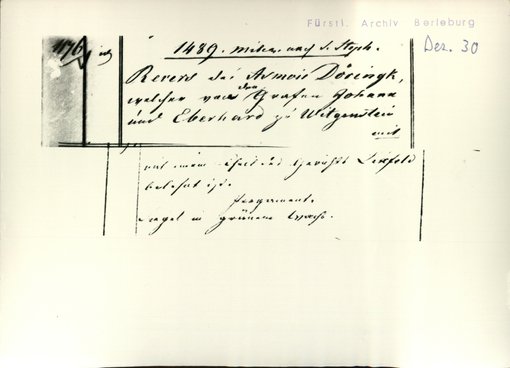 Fürstl. Archiv Berleburg
Dez. 30
1176
1489. mitw. nach S. Steph.
Revers des Döringk,
welcher von den Grafen Johann
und Eberhard zu Witgenstein
mit
mit einem des Gerichts
belehnt ist.
Pergament.
in grünem Wachs.